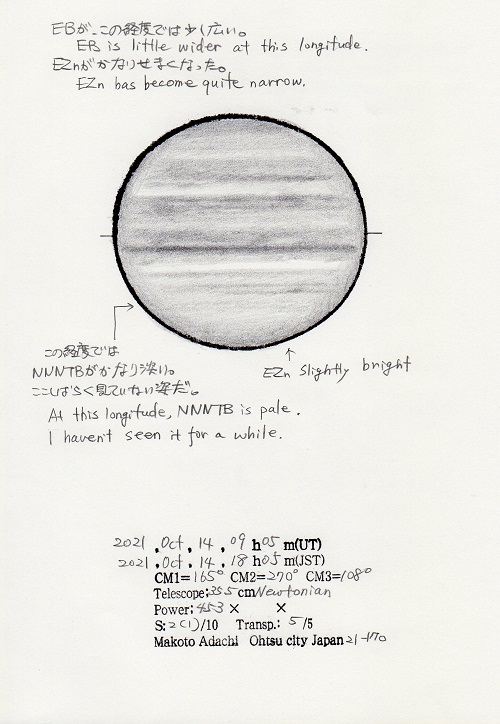 EBが、この経度では少し広い。
EB is little wider at this longitude.
EZnがかなりせまくなった。
EZn has become quite narrow.
この経度では
NNNTBがかなり淡い。
ここしばらく見ていない姿だ。
EZn slightly bright
At this longitude, NNNTB is pale.
I havent seen it for a while.
2021 , Oct , 14 , 09 h 05 m(UT)
2021 , Oct , 14 , 18 h 05 m(JST)
CM1= 165° CM2= 270° CM3= 108°
Telescope; 35.5 cm Newtonian
Power; 453 × ×
S: 2(1)/10 Transp.: 5/5
Makoto Adachi Ohtsu city Japan 21-170